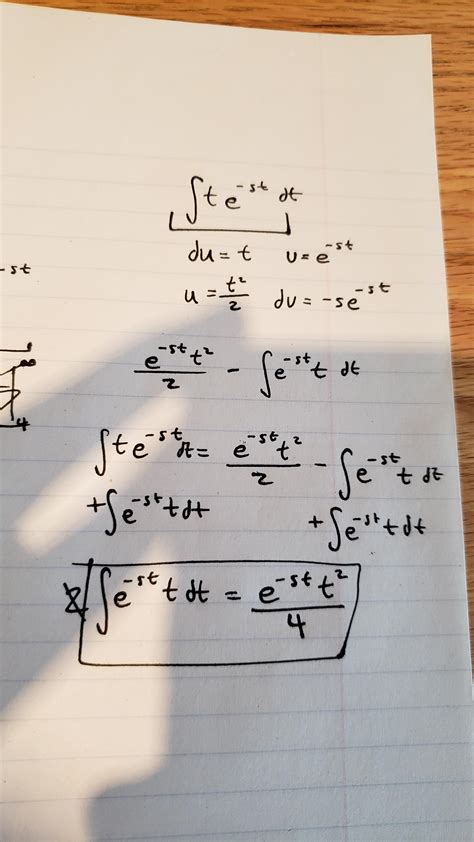 ∫te^{-st} dt
du = t    v = e^{-st}
-st
u = t²/2    dv = -se^{-st}
e^{-st}t²/2 - ∫e^{-st}t dt
4
∫te^{-st}dt = e^{-st}t²/2 - ∫e^{-st}t dt
+∫e^{-st}tdt    +∫e^{-st}tdt
2∫e^{-st}t dt = e^{-st}t²/4